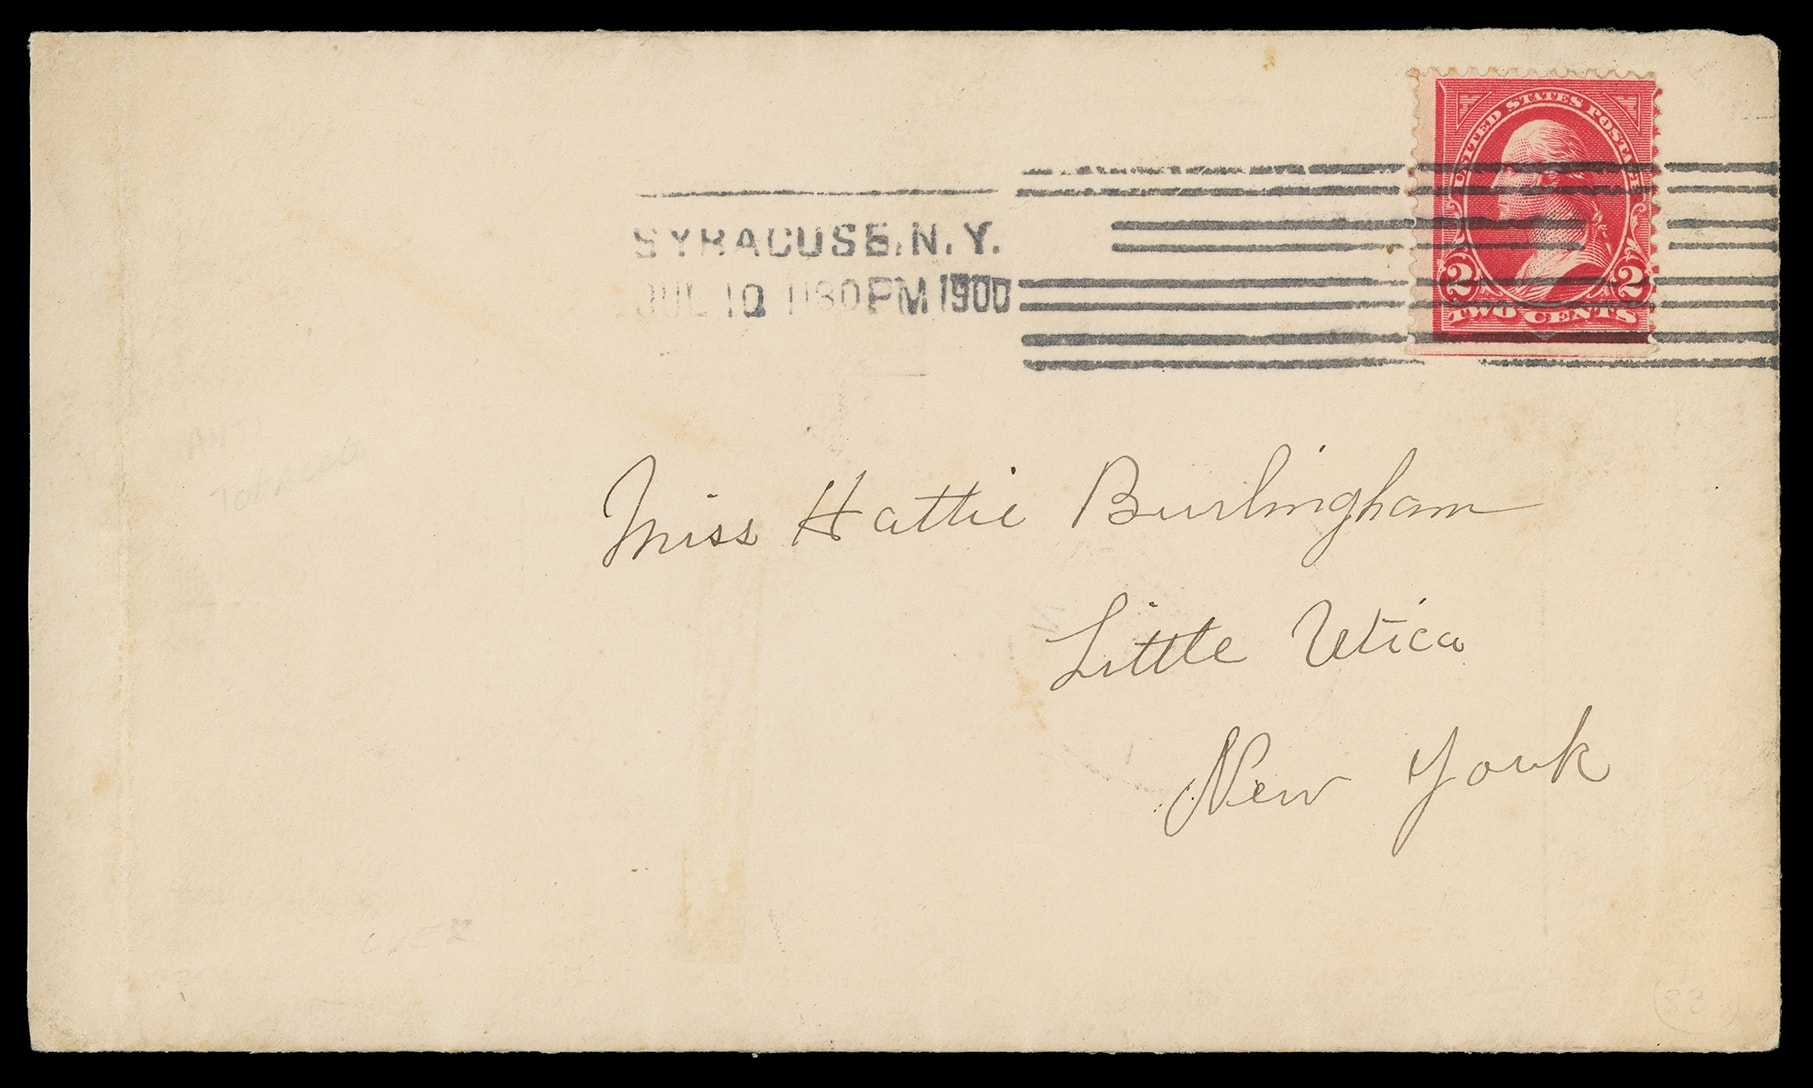 UNITED STATES POSTAGE
2 2
TWO CENTS
SYRACUSE, N.Y.
JUL 10 1130PM 1900
ANTI
TOBACCO
Miss Hattie Burlingham
Little Utica
New York
OVER